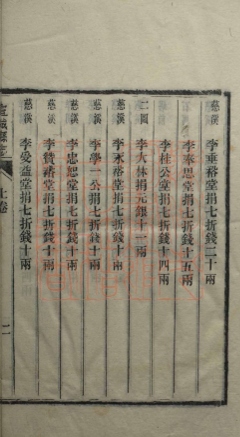 慈溪 李垂裕堂捐七折錢二十兩
慈溪 李奉思堂捐七折錢十五兩
李桂公堂捐七折錢十四兩
二圖 李大休捐元銀十一兩
慈溪 李承裕堂捐七折錢十兩
慈溪 李學一公捐七折錢十兩
慈溪 李忠恕堂捐七折錢十兩
慈溪 李贊裕堂捐七折錢十兩
慈溪 李受益堂捐七折錢十兩
上卷
二